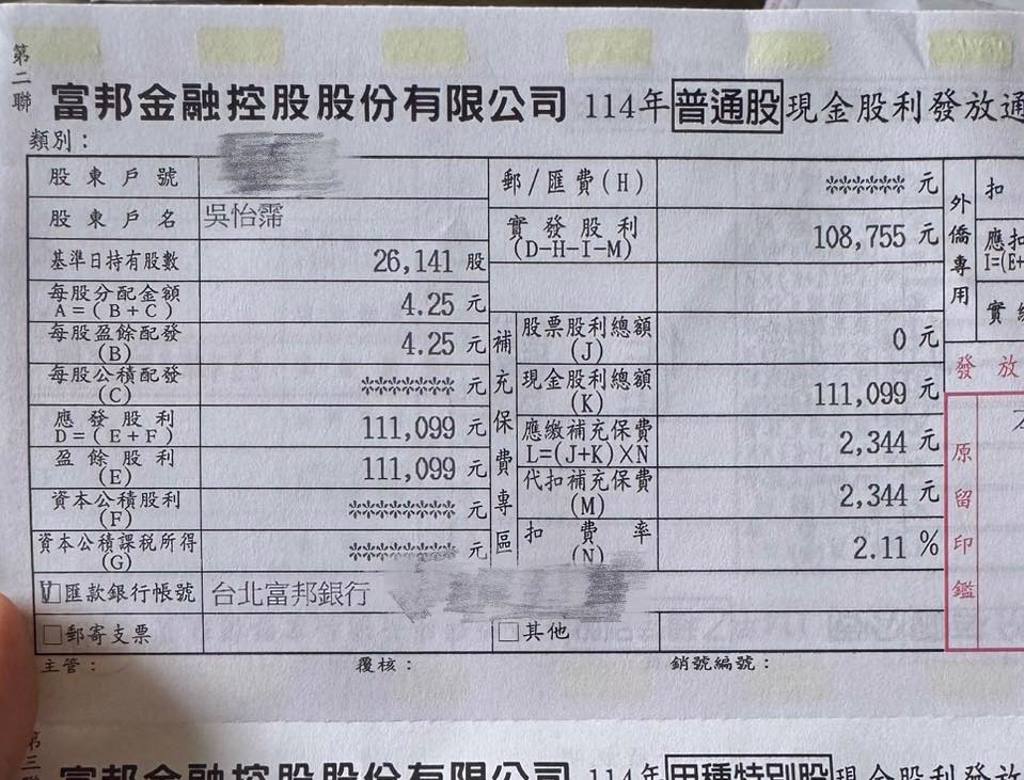 第二聯
富邦金融控股股份有限公司 114年 普通股 現金股利發放通
類別：
股東戶號
股東戶名 吳怡霈
基準日持有股數 26,141 股
每股分配金額 A=(B+C) 4.25 元
每股盈餘配發 (B) 4.25 元
每股公積配發 (C) ******* 元
應發股利 D=(E+F) 111,099 元
盈餘股利 (E) 111,099 元
資本公積股利 (F) ******** 元
資本公積課稅所得 (G) ******** 元
V 匯款銀行帳號 台北富邦銀行
□郵寄支票
□其他
郵/匯費(H) ****** 元
實發股利 (D-H-I-M) 108,755 元
補充保費專區
股票股利總額 (J) 0 元
現金股利總額 (K) 111,099 元
應繳補充保費 L=(J+K)×N 2,344 元
代扣補充保費 (M) 2,344 元
扣費率 (N) 2.11 %
外僑專用
扣
應扣
I=(E+
實
發放
原留印鑑
主管： 覆核： 銷號編號：
第三聯
富邦金融控股股份有限公司 114年 甲種特別股 現金股利發放